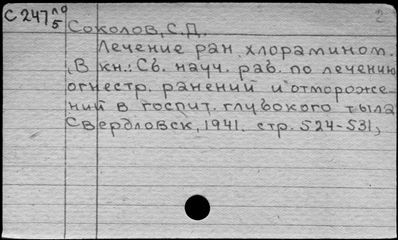 С 247 по
5
Соколов, С.Д.
Лечение ран хлорамином.
(В кн.: Сб. науч. раб. по лечению
огнестр. ранений и отмороже-
ний в госпит. глубокого тыла
Свердловск, 1941. стр. 524-531)